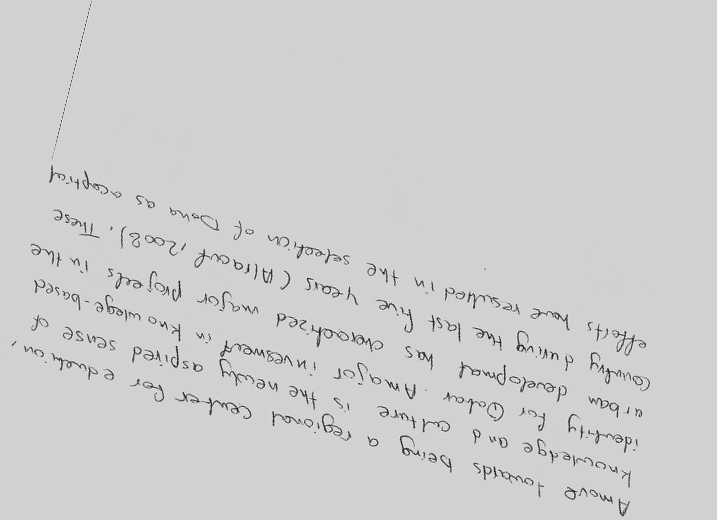 A move towards being a regional center for eduction,
knowledge and culture is the newly aspired sense of
identity for Qatar. A major invesment in knowlege-based
urban developmat has charactized major projects in the
country during the last five years (Alraouf, 2008). These
efforts have resulted in the selection of Doha as a capital